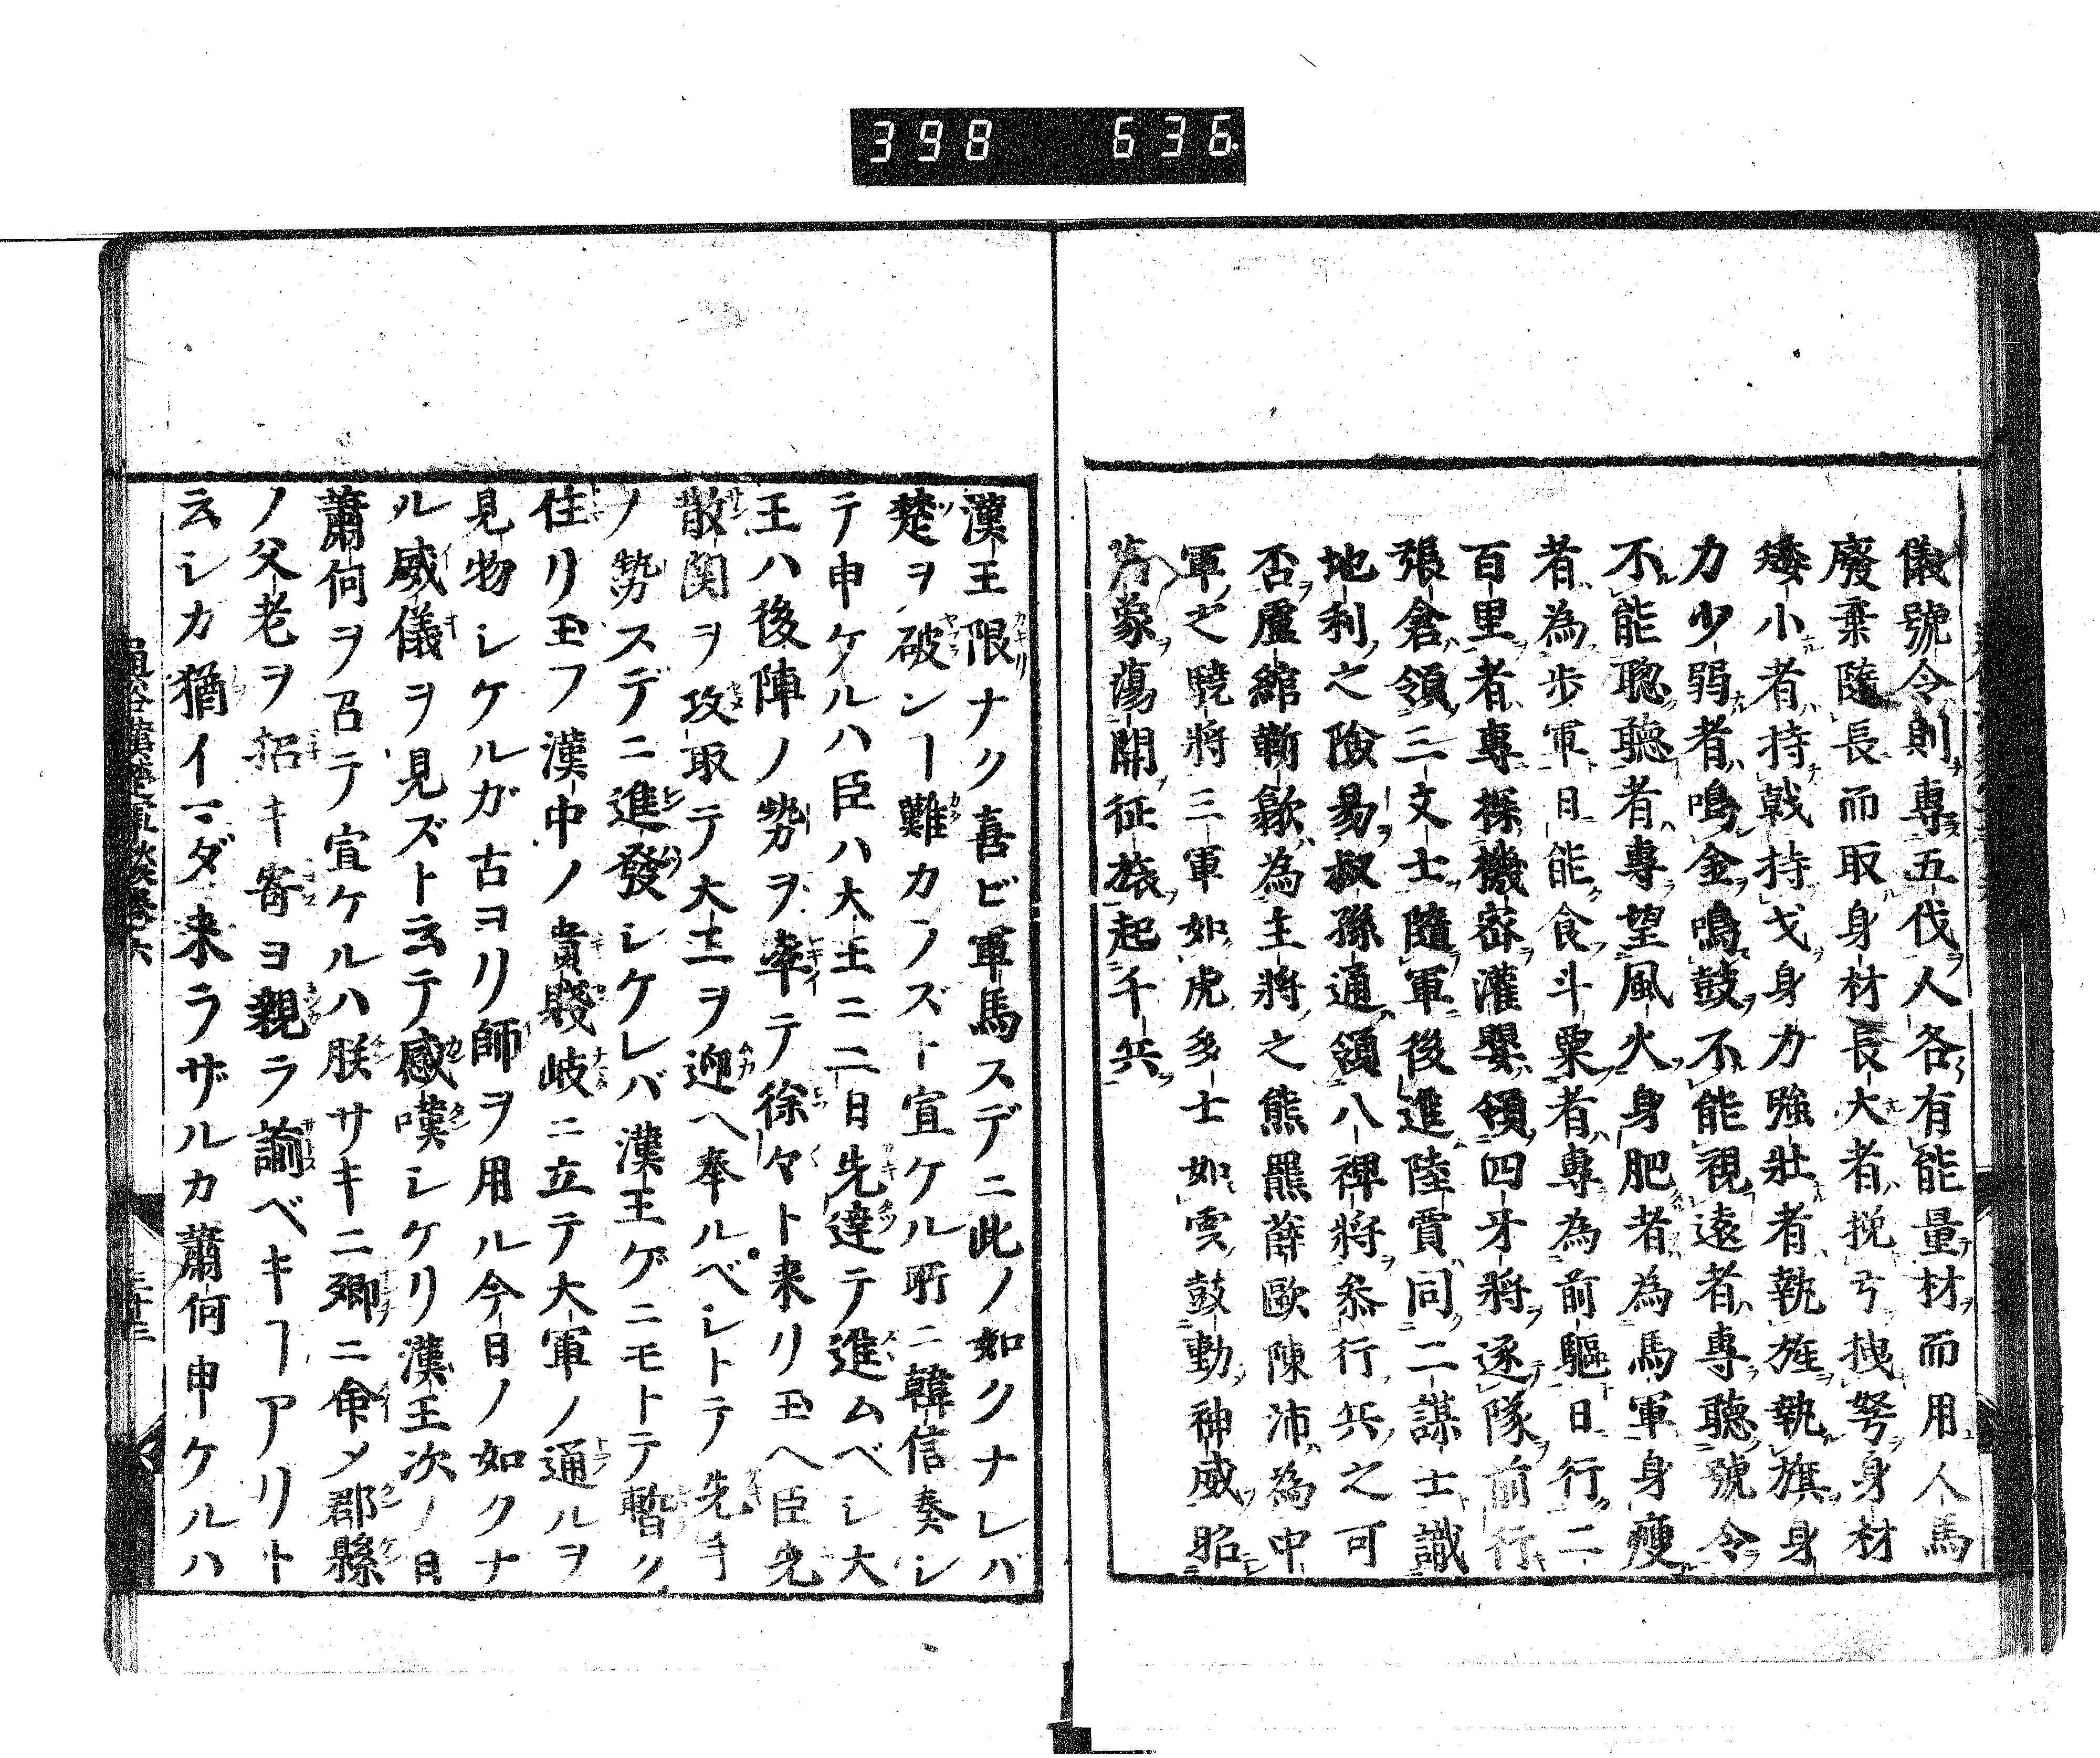 398 636
儀號令則專五伐人各有能量材而用人馬
廢棄隨長而取身材長大者挽弓拽弩身材
矮小者持戟持戈身力強壯者執旌執旗身
力少弱者鳴金鳴鼓不能視遠者專聽號令
不能聰聽者專望風火身肥者為馬軍身瘦
者為步軍日能食斗粟者專為前驅日行二
百里者專探機密灌嬰領四牙將逐隊前行
張倉領三文士隨軍後進陸賈同二謀士識
地利之險易叔孫通領八裨將叅行兵之可
否盧綰靳歙為主將之熊羆薛歐陳沛為中
軍之驍將三軍如虎多士如雲鼓動神威昭
象蕩開征旅起千兵
漢王限ナク喜ビ軍馬スデニ此ノ如クナレバ
楚ヲ破ンヿ難カラズト宣ケル所ニ韓信奏シ
テ申ケルハ臣ハ大王ニ二日先達テ進ムベシ大
王ハ後陣ノ勢ヲ率テ徐々ト来リ玉ヘ臣先
散関ヲ攻取テ大王ヲ迎ヘ奉ルベシトテ先手
ノ勢スデニ進發シケレバ漢王ゲニモトテ暫ク
住リ玉フ漢中ノ貴賤岐ニ立テ大軍ノ通ルヲ
見物シケルガ古ヨリ師ヲ用ル今日ノ如クナ
ル威儀ヲ見ズト云テ感嘆シケリ漢王次ノ日
蕭何ヲ召テ宣ケルハ朕サキニ卿ニ命メ郡縣
ノ父老ヲ招キ寄ヨ親ラ諭ベキヿアリト
云シカ猶イマダ来ラザルカ蕭何申ケルハ
通俗漢楚軍談巻六 二十三